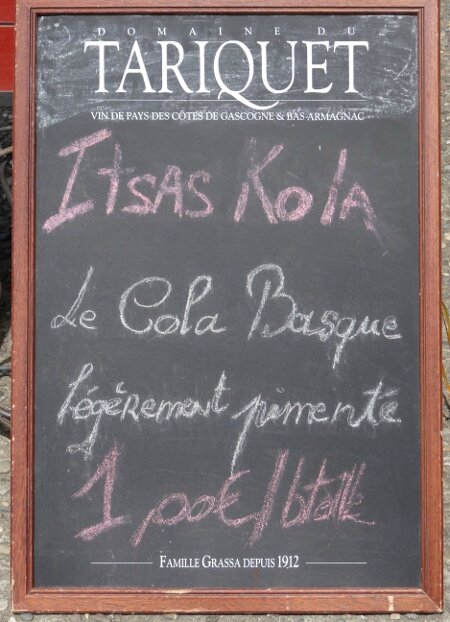 DOMAINE DU
TARIQUET
VIN DE PAYS DES CÔTES DE GASCOGNE & BAS-ARMAGNAC
Itsas Kola
Le Cola Basque
légèrement pimenté
1,00€/btelle
FAMILLE GRASSA DEPUIS 1912